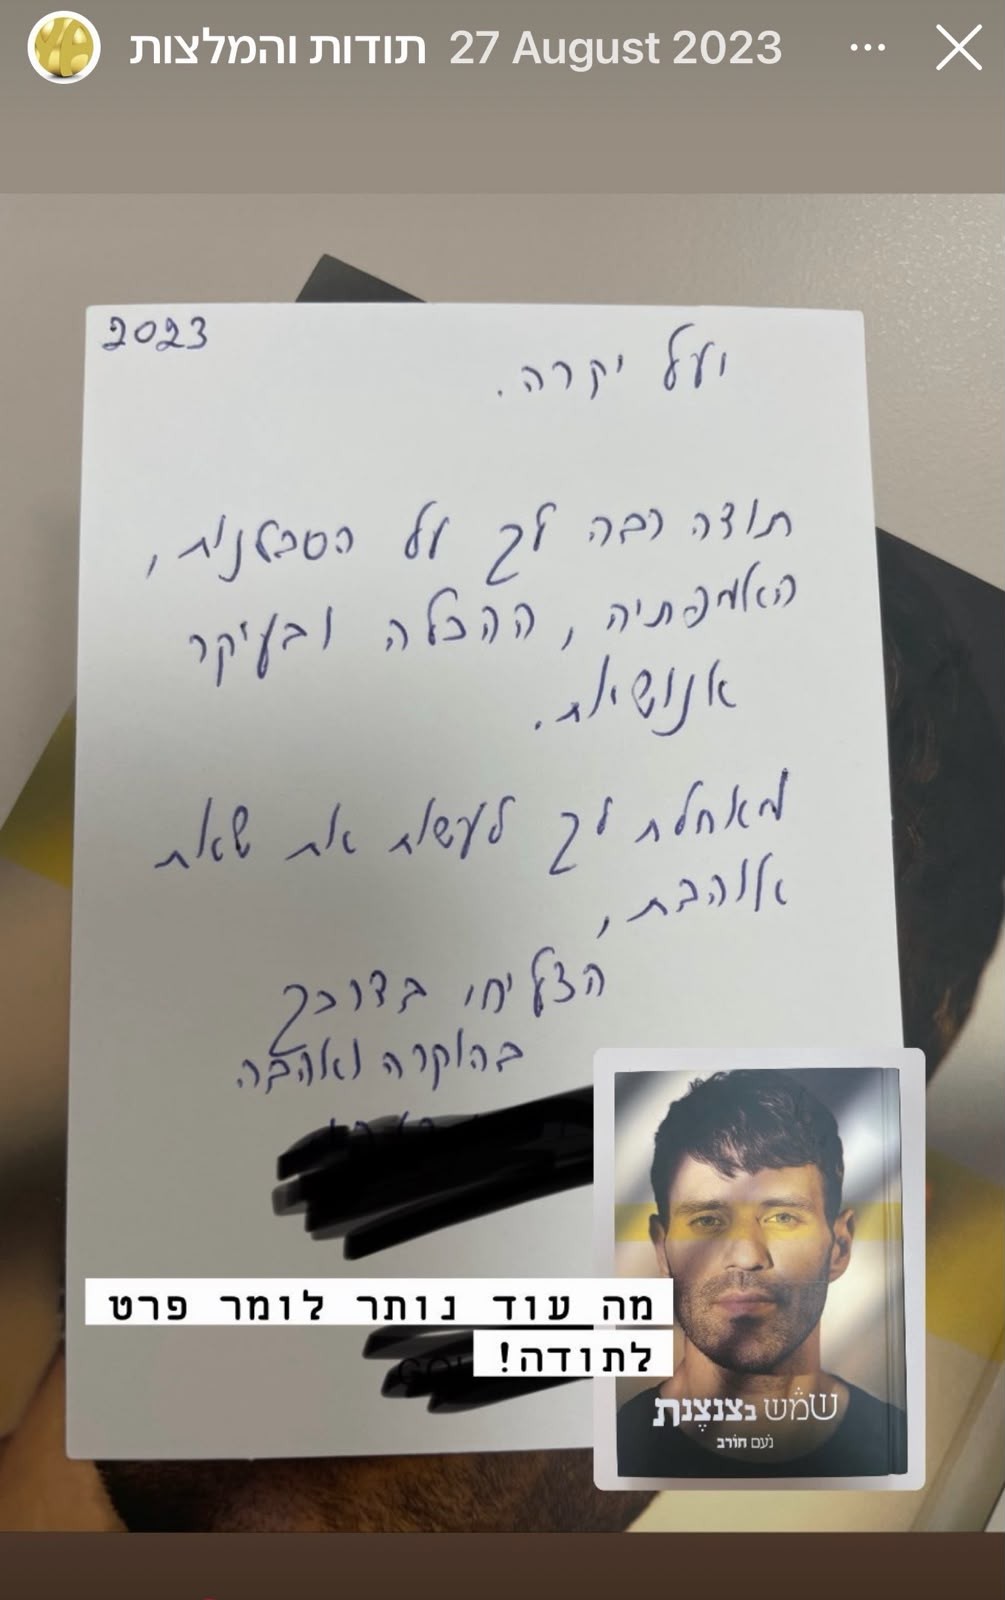 תודות והמלצות 27 August 2023
2023
יעל יקרה.
תודה רבה לך על הסבלנות,
האמפתיה, ההכלה ובעיקר
אנושיות.
מאחלת לך לעשות את שאת
אוהבת,
הצליחי בדרכך
בהוקרה ואהבה
מה עוד נותר לומר פרט
לתודה!
שמש בצנצנת
נעם חורב